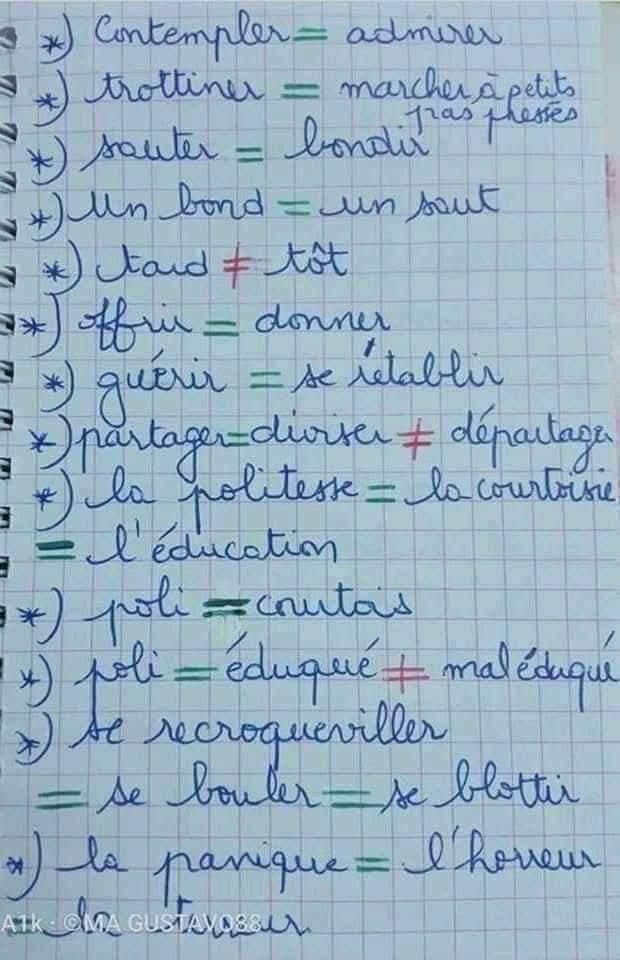 *) Contempler = admirer
*) trottiner = marcher à petits
pas pressés
*) sauter = bondir
*) Un bond = un saut
*) tard ≠ tôt
*) offrir = donner
*) guérir = se rétablir
*) partager = diviser ≠ départager
*) la politesse = la courtoisie
= l'éducation
*) poli = courtois
*) poli = éduqué ≠ mal éduqué
*) se recroqueviller
= se bouler = se blottir
*) la panique = l'horreur
= la terreur.
A1k · ©MA GUSTAV088